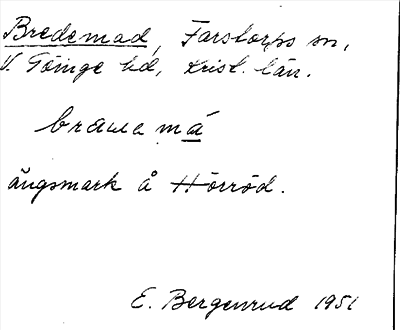 Bredemad, Farstorps sn,
V. Göinge hd, Krist. län.
ängsmark å Hörröd.
E. Bergenrud 1951